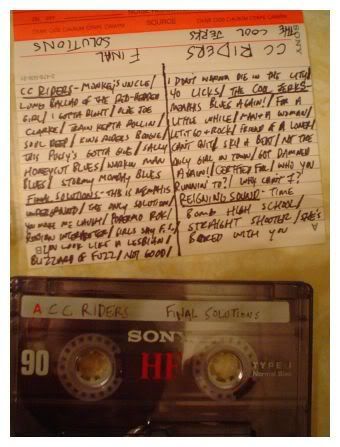 SOURCE
SONY
THE COOL JERKS
CC RIDERS
FINAL SOLUTIONS
CC RIDERS - MONKEY'S UNCLE/
LONG BALLAD OF THE RED-HEADED
GIRL/ I GOTTA HURT/ OLE JOE
CLARKE/ TRAIN KEPTA ROLLIN/
SOUL DEEP/ KING RIDERS BOOGIE/
THIS PONY'S GOTTA RIDE/ SALLY
HONEYCUT BLUES/ WORKIN MAN
BLUES/ STORMY MONDAY BLUES
FINAL SOLUTIONS - THIS IS MEMPHIS
UNDERGROUND/ THE ONLY SOLUTION/
YOU MAKE ME LAUGH/ ROK/
GIRLS SAY
YOU LOOK LIKE A LESBIAN/
BLIZZARD OF FUZZ/ NOT GOOD/
I DON'T WANNA DIE IN THE CITY/
40 LICKS/ THE COOL JERKS-
MEMPHIS BLUES AGAIN!/ FOR A
LITTLE WHILE/ MAN & A WOMAN/
LET IT GO & ROCK/ FRIEND OF A LOVER/
CAN'T QUIT/ SKIN & BENT/ NOT THE
ONLY GIRL IN TOWN/ GOT DAMNED
AGAIN!/ CERTIFIED FOR/ WHO YOU
RUNNIN TO?/ WHY CAN'T I?/
REIGNING SOUND - TIME
BOMB HIGH SCHOOL/
STRAIGHT SHOOTER/ SHE'S
BORED WITH YOU
A CC RIDERS FINAL SOLUTIONS
SONY
90
HF
TYPE I
Normal Bias